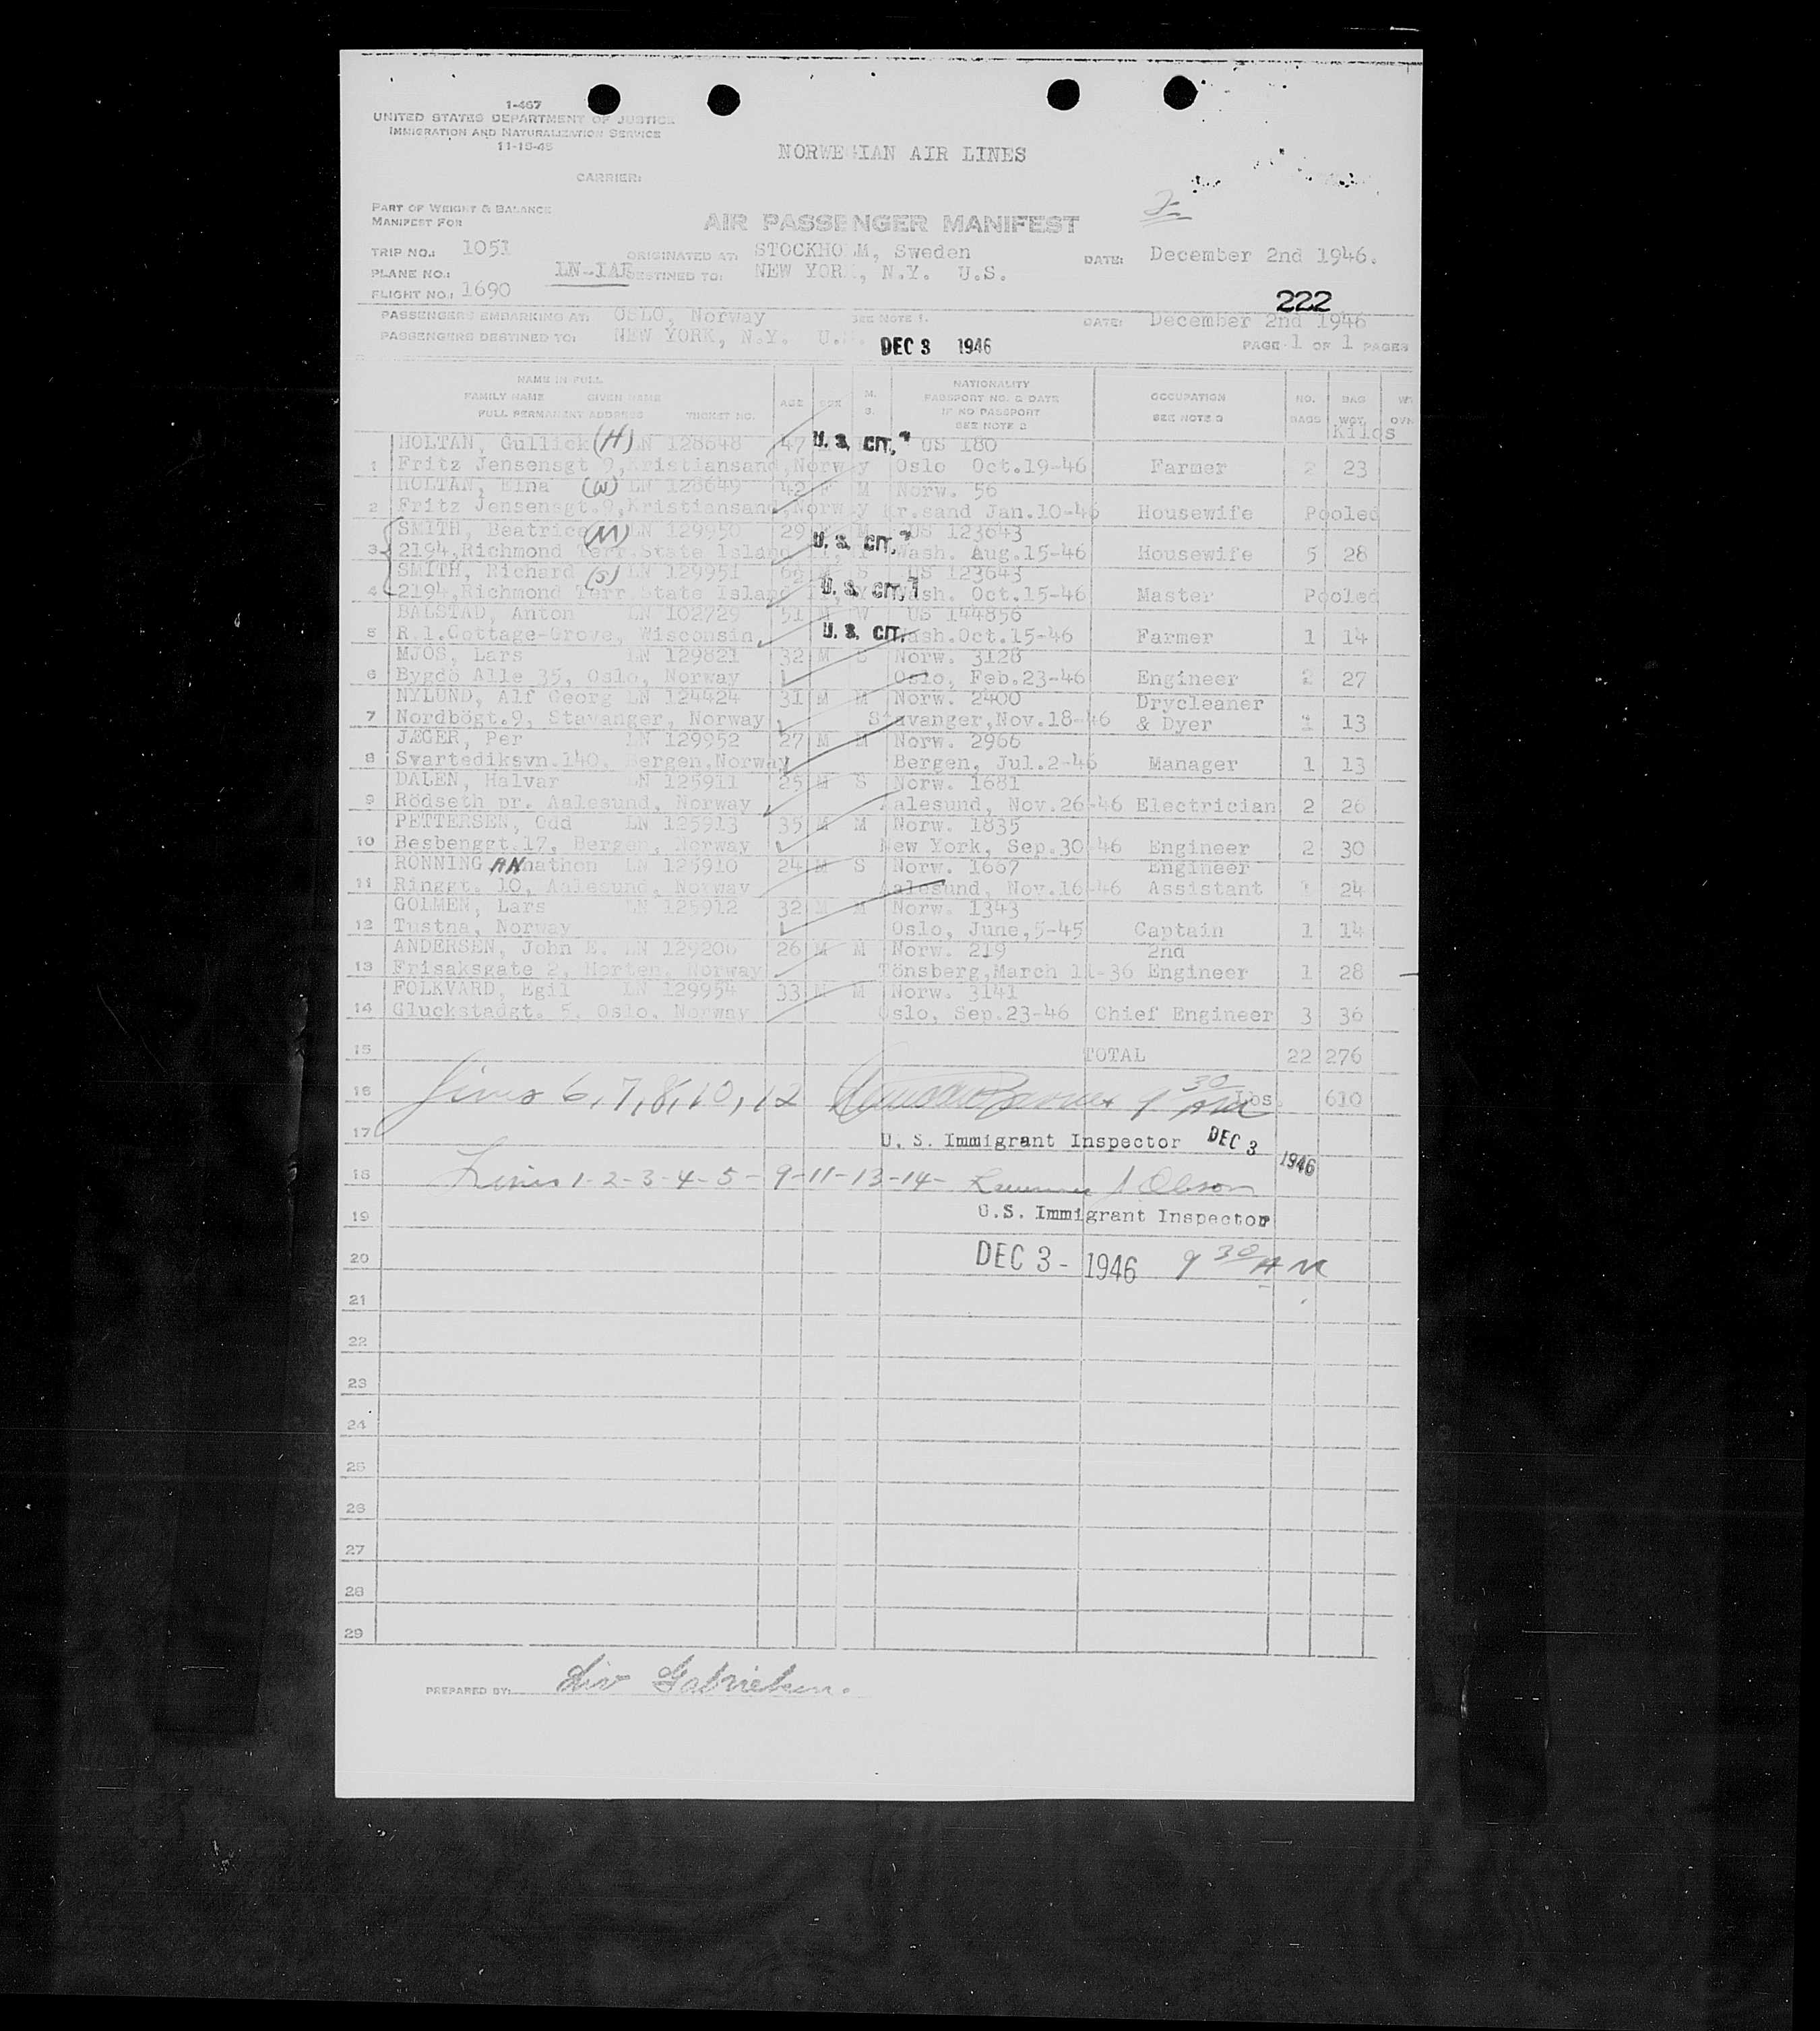 1-467
UNITED STATES DEPARTMENT OF JUSTICE
IMMIGRATION AND NATURALIZATION SERVICE
11-15-45
NORWEGIAN AIR LINES
CARRIER:
PART OF WEIGHT & BALANCE
MANIFEST FOR
AIR PASSENGER MANIFEST
TRIP NO.: 1051 ORIGINATED AT: STOCKHOLM, Sweden DATE: December 2nd 1946.
PLANE NO.: LN-IAE DESTINED TO: NEW YORK, N.Y. U.S.
FLIGHT NO.: 1690
222
PASSENGERS EMBARKING AT: OSLO, Norway SEE NOTE 1. DATE: December 2nd 1946
PASSENGERS DESTINED TO: NEW YORK, N.Y. U.S. DEC 3 1946 PAGE 1 OF 1 PAGES
NAME IN FULL NATIONALITY
FAMILY NAME GIVEN NAME AGE SEX M. PASSPORT NO. & DATE OCCUPATION NO. BAG
FULL PERMANENT ADDRESS TICKET NO. S. IF NO PASSPORT SEE NOTE 3 BAGS WGT.
SEE NOTE 2 Kilos
HOLTAN, Gullick (H) LN 128648 47 U.S. CIT. US 180
1 Fritz Jensensgt 9, Kristiansand, Norway Oslo Oct.19-46 Farmer 2 23
HOLTAN, Elna (W) LN 128649 42 F M Norw. 56
2 Fritz Jensensgt.9, Kristiansand, Norway Kr.sand Jan.10-46 Housewife Pooled
SMITH, Beatrice (M) LN 129950 29 F M US 123643
3 2194, Richmond Terr. State Island U.S. CIT. Wash. Aug.15-46 Housewife 5 28
SMITH, Richard (S) LN 129951 M S US 123643
4 2194, Richmond Terr. State Island U.S. CIT. Wash. Oct.15-46 Master Pooled
BALSTAD, Anton LN 102729 51 M W US 144856
5 R.1.Cottage-Grove, Wisconsin U.S. CIT. Wash.Oct.15-46 Farmer 1 14
MJOS, Lars LN 129821 32 M S Norw. 3128
6 Bygdö Alle 35, Oslo, Norway Oslo, Feb.23-46 Engineer 2 27
NYLUND, Alf Georg LN 124424 31 M M Norw. 2400 Drycleaner
7 Nordbögt.9, Stavanger, Norway Stavanger,Nov.18-46 & Dyer 1 13
JÆGER, Per LN 129952 27 M M Norw. 2966
8 Svartediksvn.140, Bergen,Norway Bergen, Jul.2-46 Manager 1 13
DALEN, Halvar LN 125911 25 M S Norw. 1681
9 Rödseth pr. Aalesund, Norway Aalesund, Nov.26-46 Electrician 2 26
PETTERSEN, Odd LN 125913 35 M M Norw. 1835
10 Besbenggt.17, Bergen, Norway New York, Sep.30-46 Engineer 2 30
RONNING ANnathon LN 125910 24 M S Norw. 1667 Engineer
11 Ringgt. 10, Aalesund, Norway Aalesund, Nov.16-46 Assistant 1 24
GOLMEN, Lars LN 125912 32 M M Norw. 1343
12 Tustna, Norway Oslo, June,5-45 Captain 1 14
ANDERSEN, John E. LN 129200 26 M M Norw. 219 2nd
13 Frisaksgate 2, Horten, Norway Tönsberg,March 11-36 Engineer 1 28
FOLKVARD, Egil LN 129954 33 M M Norw. 3141
14 Gluckstadgt. 5, Oslo, Norway Oslo, Sep.23-46 Chief Engineer 3 36
15 TOTAL 22 276
16 Lines 6, 7, 8, 10, 12 9 30 AM Lbs. 610
17 U. S. Immigrant Inspector DEC 3 1946
18 Lines 1-2-3-4-5-9-11-13-14- Olson
19 U.S. Immigrant Inspector
20 DEC 3 - 1946 9 30 AM
21
22
23
24
25
26
27
28
29
PREPARED BY: Liv Gabrielsen.